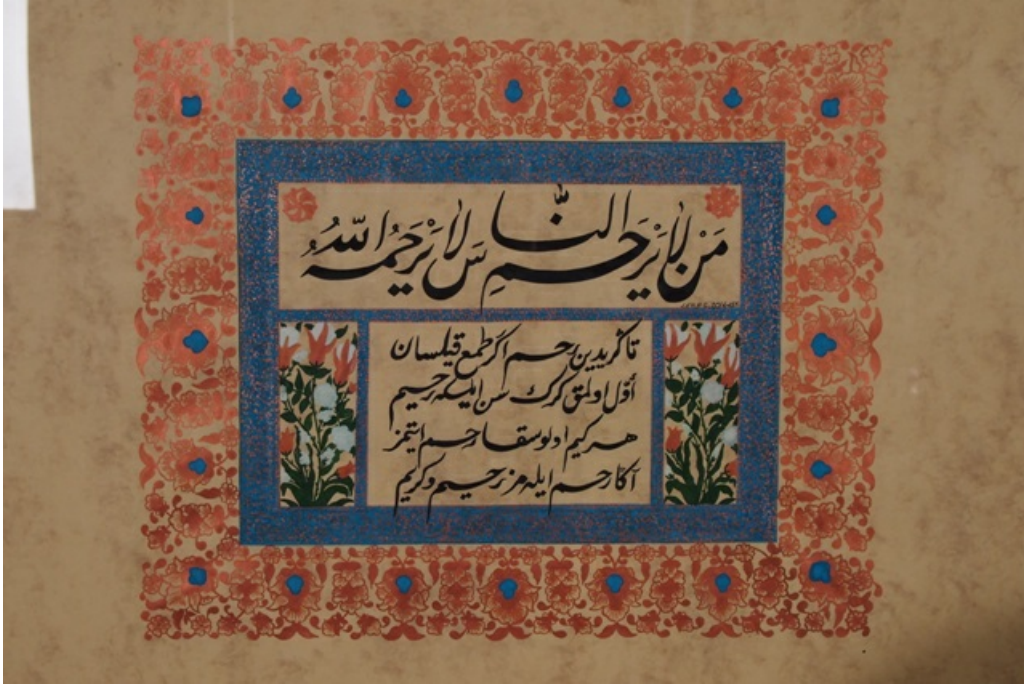 مَنْ لَا يَرْحَمِ النَّاسَ لَا يَرْحَمُهُ اللّٰهُ
تاڭريدين رحم اگر طمع قيلسان
اُوّل اولمق كرك سن ايلكه رحيم
هر كيم اولوسقا رحم ايتمز
آڭا رحم ايله مز رحيم و كريم